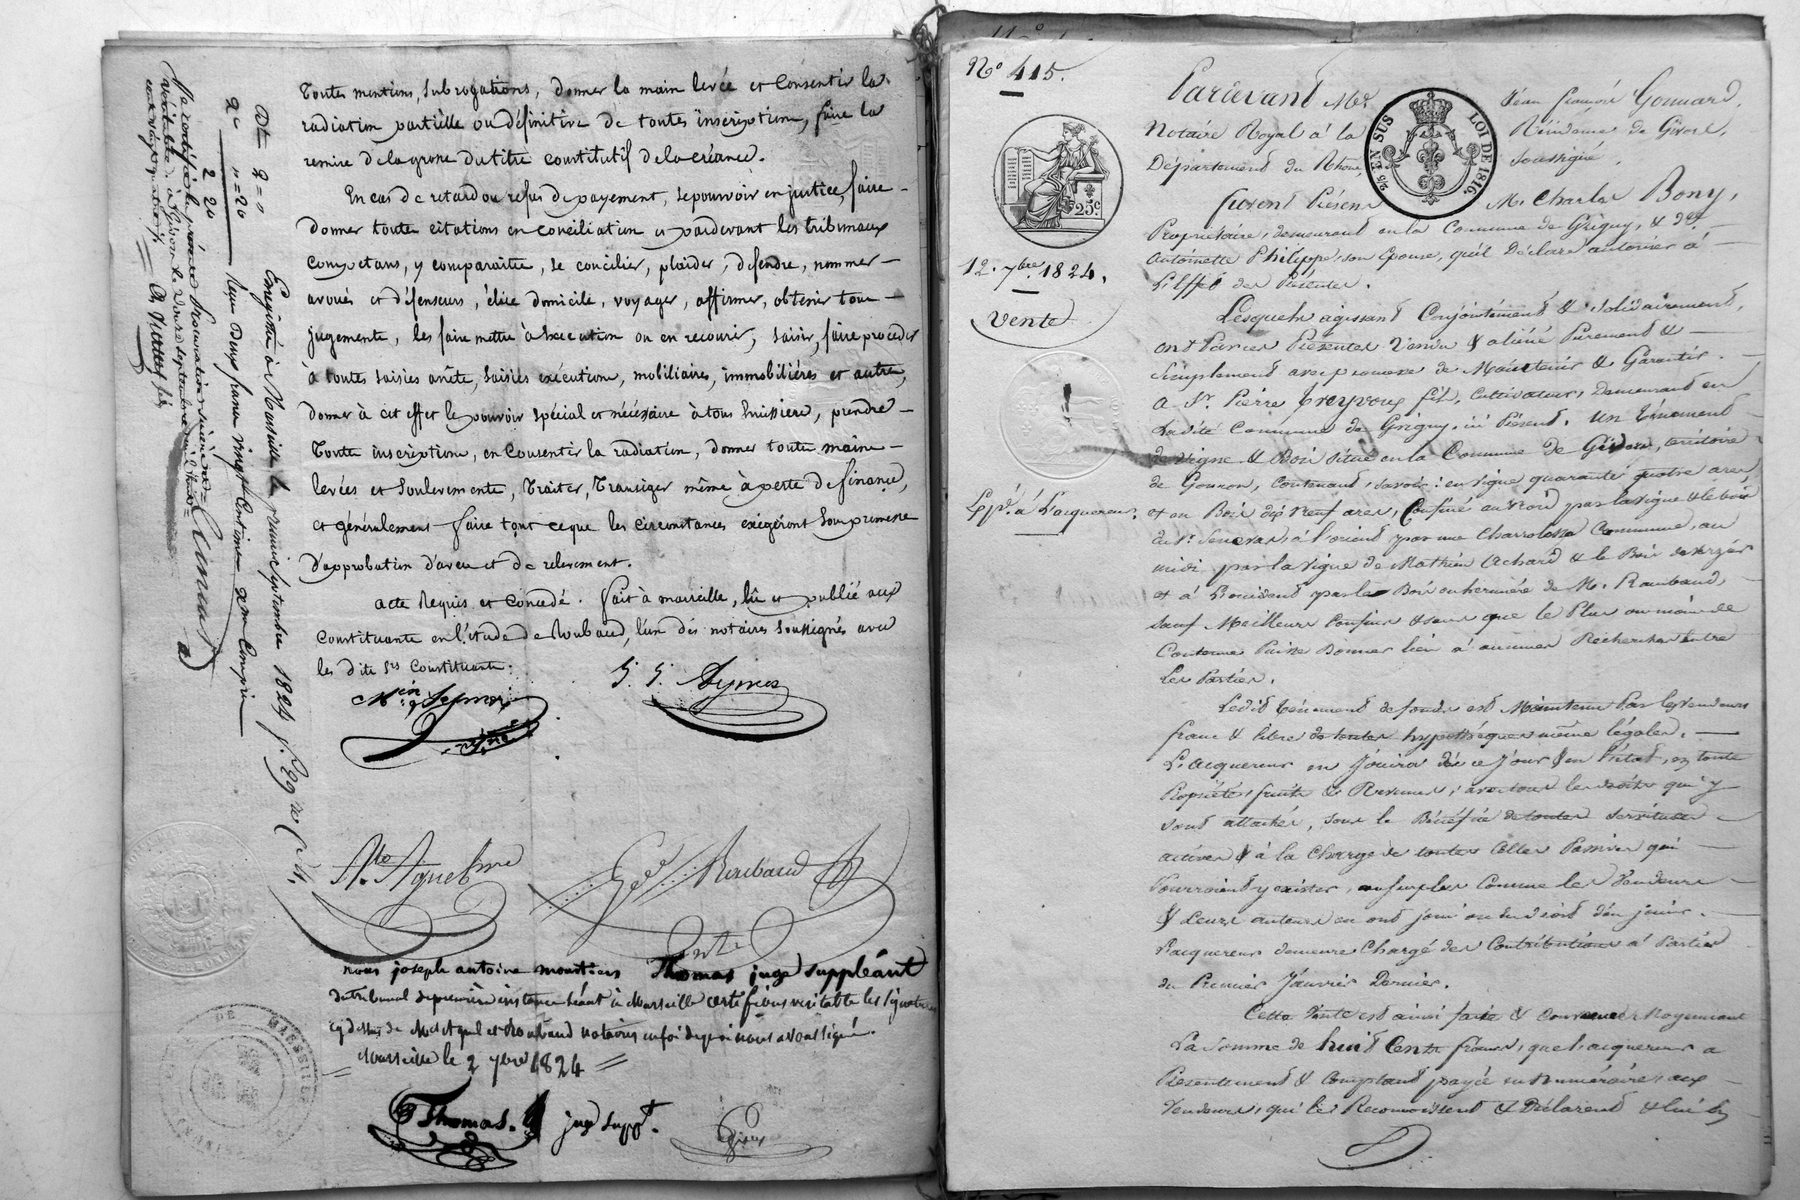 toutes mentions, subrogations, donner la main levée et consentir la
radiation partielle ou définitive de toutes inscriptions, faire la
remise de la grosse du titre constitutif de la créance.
En cas de retard ou refus de payement, se pourvoir en justice, faire
donner toute citations en conciliation et pardevant les tribunaux
compétans, y comparaitre, se concilier, plaider, défendre, nommer
avoués et défenseurs, élire domicile, voyager, affirmer, obtenir tous
jugements, les faire mettre à exécution ou en recourir, saisir, faire procéder
à toutes saisies arrêts, saisies exécutions, mobiliaires, immobilières et autres,
donner à cet effet le pouvoir spécial et nécessaire à tous huissiers, prendre
toute inscriptions, en consentir la radiation, donner toute main
levées et soulevements, traiter, transiger même à perte de finance,
et généralement faire tout ce que les circonstances exigeront sous promesse
d'approbation d'aveu et de relevement.
acte requis et concédé. fait à marseille, lû et publié aux
constituants en l'étude de Roubaud, l'un des notaires soussignés avec
les dits srs constituants.
Enregistré à Marseille le septembre 1824 f.
Reçu deux francs vingt centimes xme compris
2 20
nous joseph antoine moustiers Thomas juge suppléant
du tribunal de première instance séant à Marseille certifions véritable les signatures
cy dessus de Mes et Roubaud notaires en foi de quoi nous avons signé.
Marseille le 2 7bre 1824
Thomas. juge suppt.
DE MARSEILLE
No 415.
25c
25c EN SUS
LOI DE 1816.
12. 7bre 1824.
Vente
Expn. à l'acquereur.
Pardevant Me. Jean françois Gonnard,
Notaire Royal à la Résidence de Givors,
Département du Rhône soussigné.
furent Présens M. Charles Bony,
Propriétaire, demeurant en la Commune de Grigny, & de
antoinette Philippe son épouse, qu'il déclare autoriser à
l'effet des Présentes.
Lesquels agissant Conjointement & Solidairement,
ont Par ces Présentes Vendu & aliéné Purement &
Simplement avec promesse de Maintenir & Garantir
a Sr. Pierre freyvoux fils, Cultivateur, Demeurant en
Ladite Commune de Grigny, ici Présent, un ténement
de Vigne & Bois situé en la Commune de Givors, territoire
de Gouron, Contenant, savoir: en vigne quarante quatre ares,
et en Bois dix neuf ares, Confiné au nord par la vigne & le bois
du Sr. à l'orient par une Charrolesse Commune, au
midi par la vigne de Mathieu Achard & le Bois de
et à l'occident par les Bois ou hermes de M. Raubaud,
Sauf Meilleurs Confins & sans que le Plus ou moins de
Contenue Puisse Donner lieu à aucunes Recherches entre
Les Parties.
Ledit ténement de fonds est Maintenu Par les Vendeurs
franc & libre de toutes hypothèques même légales.
L'acquereur en Jouira dès ce Jour & en l'état, en toute
Propriété, fruits & Revenus, avec tous les droits qui y
sont attachés, sous le Bénéfice de toutes Servitudes
actives & à la Charge de toutes Celles Passives qui
Pourroient y exister, au surplus Comme les Vendeurs
& Leurs auteurs en ont joui ou eu droit d'en jouir.
L'acquereur demeure Chargé des Contributions à Partir
du Premier Janvier Dernier.
Cette Vente est ainsi faite & Convenue Moyennant
La Somme de huit Cents francs, que l'acquereur a
Présentement & Comptant payée en Numéraire, aux
Vendeurs, qui les Reconnoissent & Déclarent & lui en